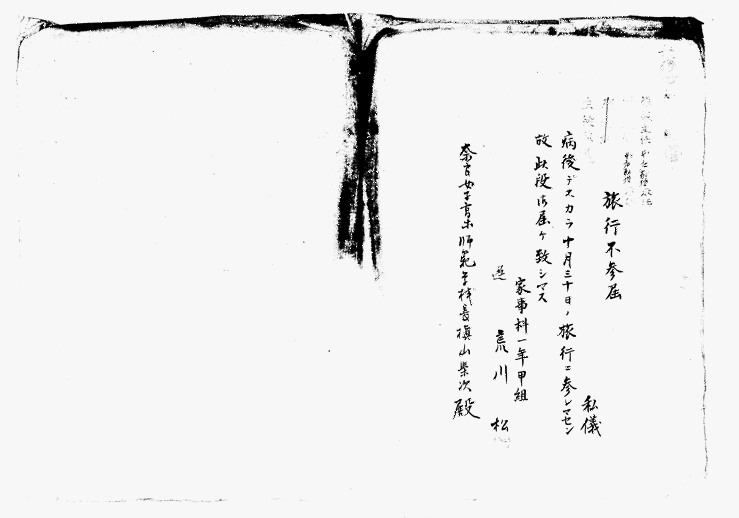 旅行不参届
私儀
病後デスカラ十月三十日ノ旅行ニ参レマセン
故此段御届ケ致シマス
家事科一年甲組
荒川 松
奈良女子高等師範学校長槇山榮次殿